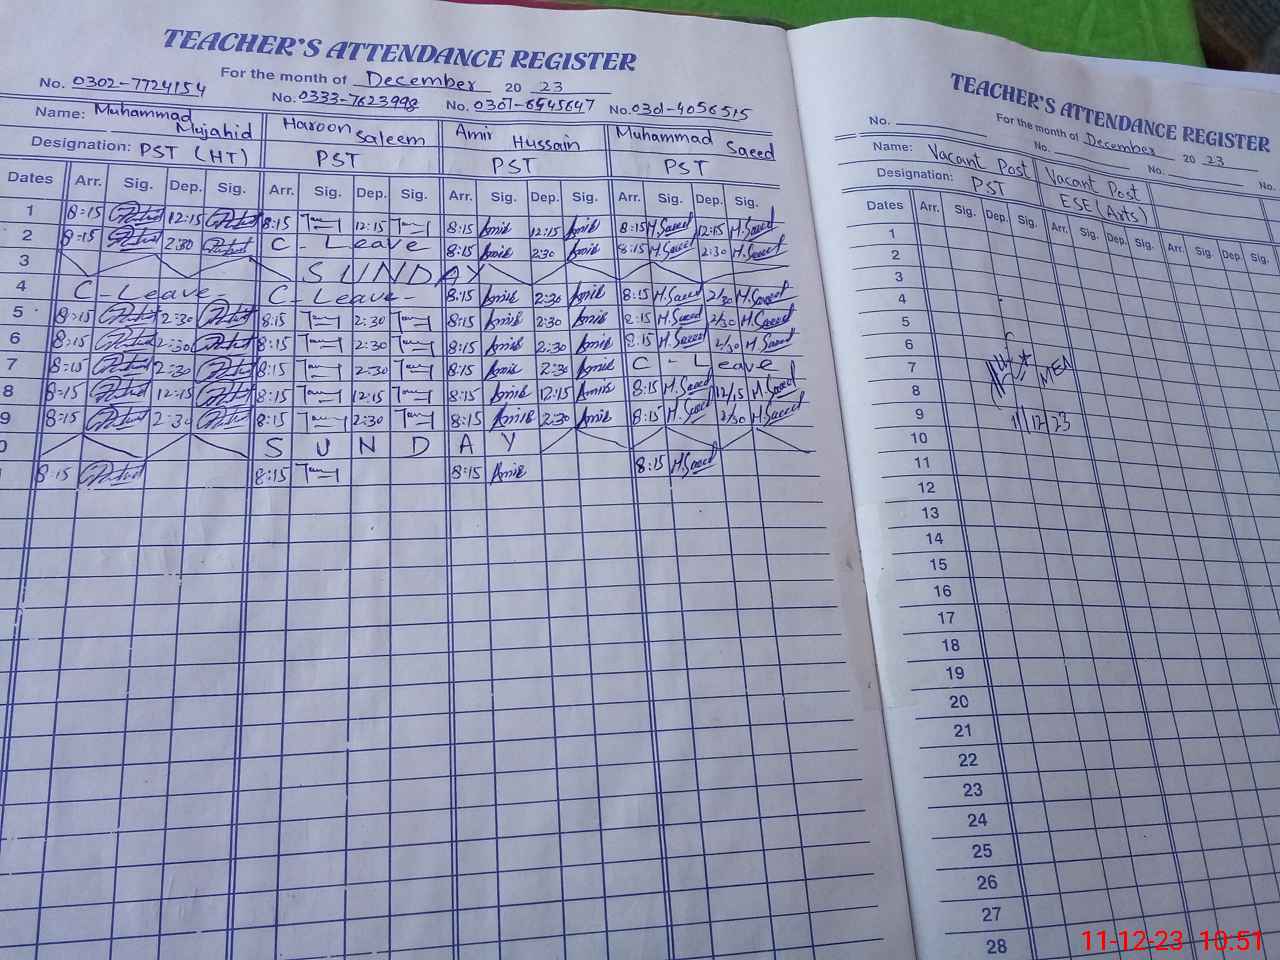 TEACHER'S ATTENDANCE REGISTER
For the month of December 20 23
No. 0302-7724154 No. 0333-7623998 No. 0301-6545647 No. 0301-4056515
Name: Muhammad Mujahid Haroon Saleem Amir Hussain Muhammad Saeed
Designation: PST (HT) PST PST PST
Dates Arr. Sig. Dep. Sig. Arr. Sig. Dep. Sig. Arr. Sig. Dep. Sig. Arr. Sig. Dep. Sig.
1 8:15 12:15 8:15 12:15 8:15 Amir 12:15 Amir 8:15 M.Saeed 12:15 M.Saeed
2 8:15 2:30 C - Leave 8:15 Amir 2:30 Amir 8:15 M.Saeed 2:30 M.Saeed
3 SUNDAY
4 C-Leave- C-Leave- 8:15 Amir 2:30 Amir 8:15 M.Saeed 2/30 M.Saeed
5 8:15 2:30 8:15 2:30 8:15 Amir 2:30 Amir 8:15 M.Saeed 2/30 M.Saeed
6 8:15 2:30 8:15 2:30 8:15 Amir 2:30 Amir 8:15 M.Saeed 2/30 M.Saeed
7 8:15 2:30 8:15 2:30 8:15 Amir 2:30 Amir C - Leave
8 8:15 12:15 8:15 12:15 8:15 Amir 12:15 Amir 8:15 M.Saeed 12/15 M.Saeed
9 8:15 2:30 8:15 2:30 8:15 Amir 2:30 Amir 8:15 M.Saeed 2/30 M.Saeed
0 SUNDAY
1 8:15 8:15 8:15 Amir 8:15 M.Saeed
TEACHER'S ATTENDANCE REGISTER
For the month of December 20 23
No. No. No. No.
Name: Vacant Post Vacant Post
Designation: PST ESE (Arts)
Dates Arr. Sig. Dep. Sig. Arr. Sig. Dep. Sig. Arr. Sig. Dep. Sig.
1
2
3
4
5
6
7 MEA
8
9 11/12/23
10
11
12
13
14
15
16
17
18
19
20
21
22
23
24
25
26
27
28
11-12-23 10:51